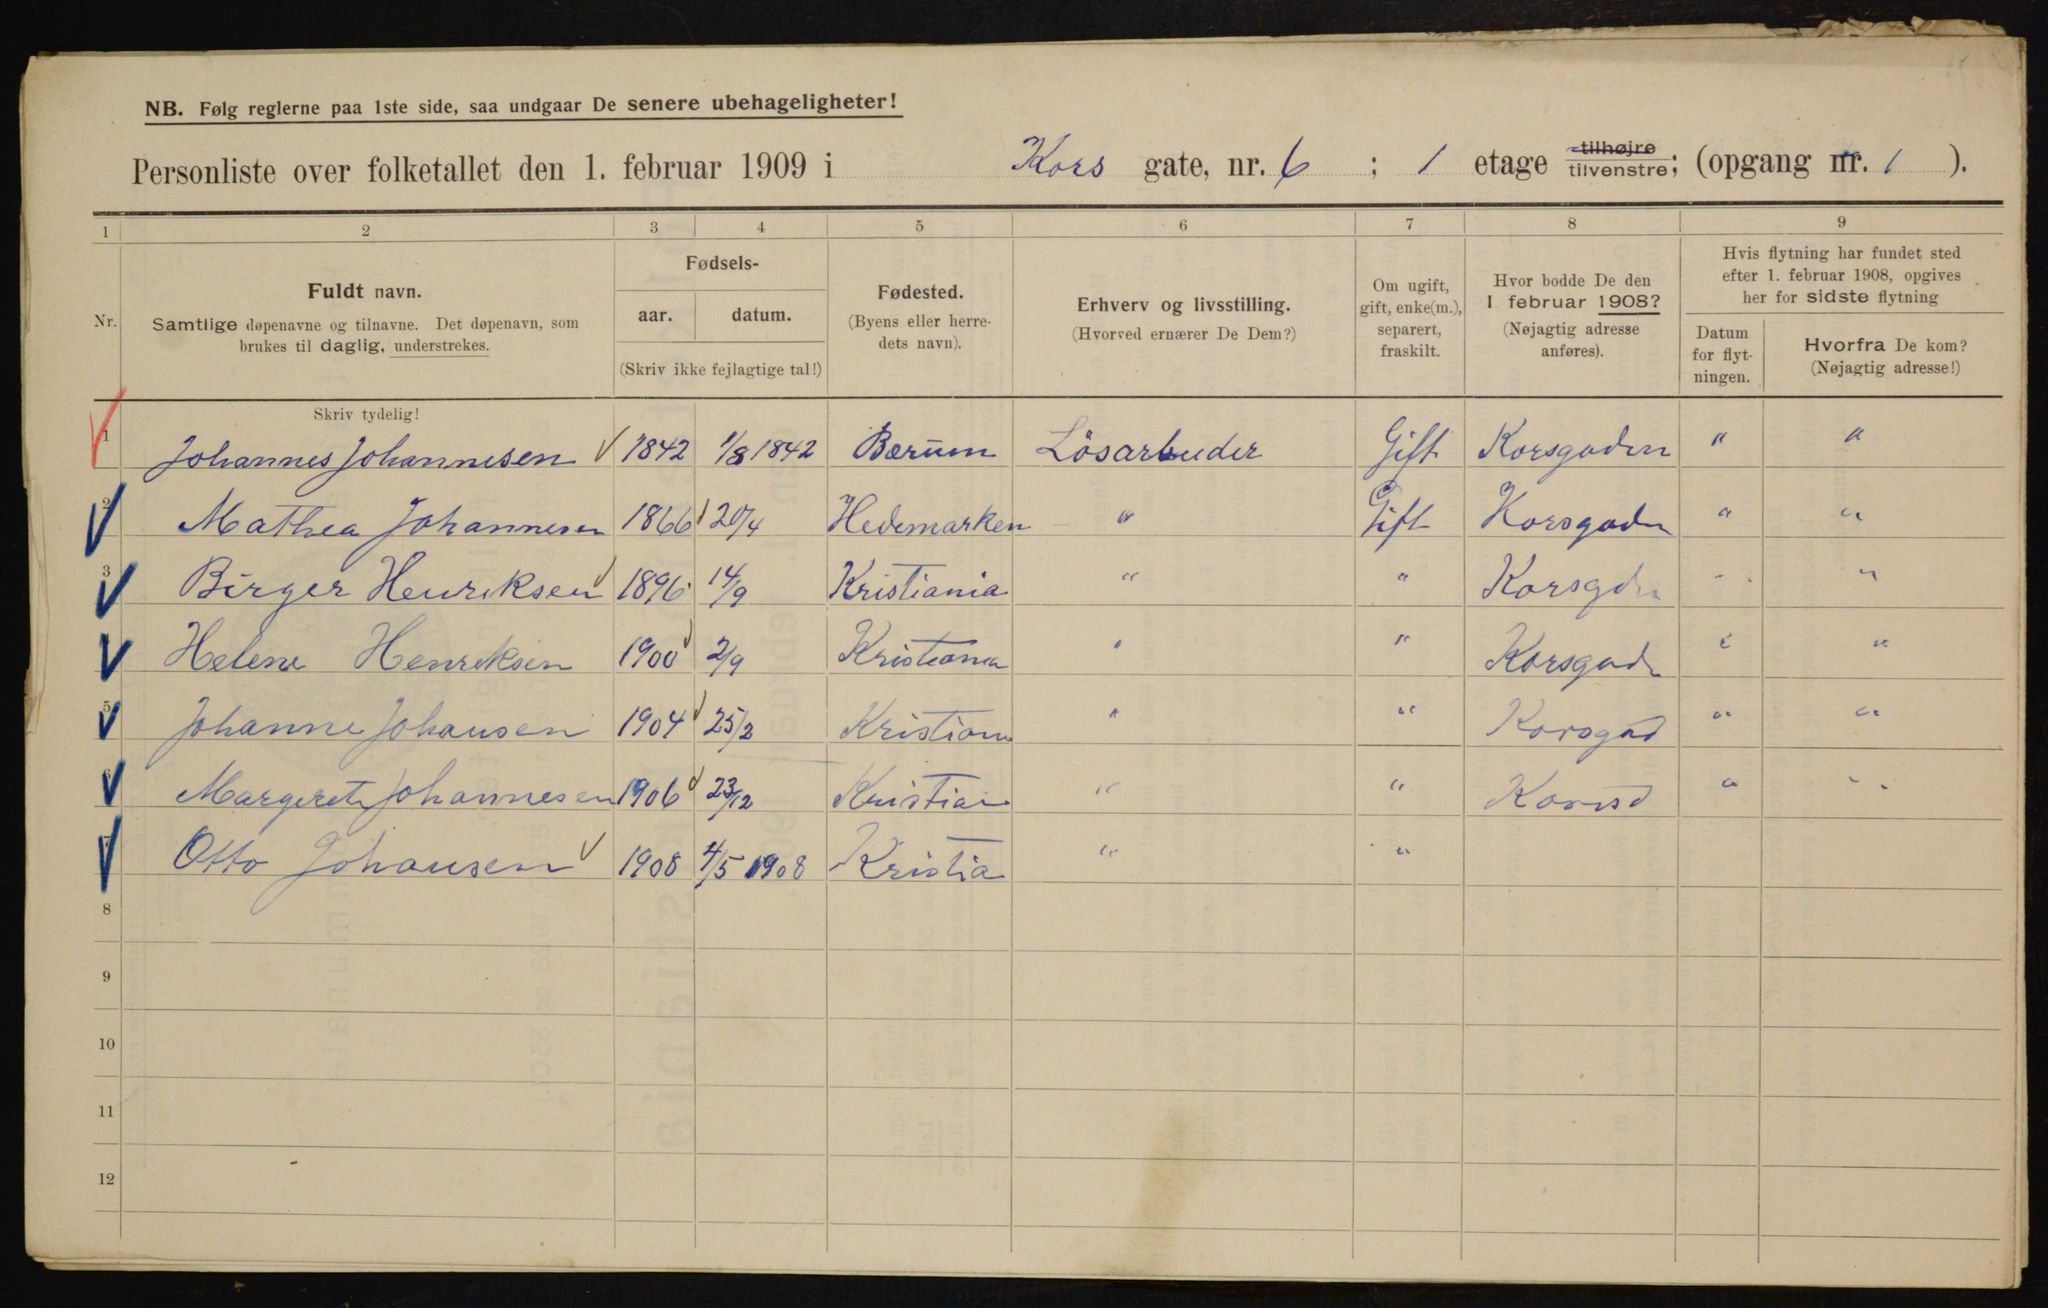 NB. Følg reglerne paa 1ste side, saa undgaar De senere ubehageligheter!
Personliste over folketallet den 1. februar 1909 i Kors gate, nr. 6 ; 1 etage tilhøjre tilvenstre; (opgang nr. 1 ).
1 2 3 4 5 6 7 8 9
Nr.
Fuldt navn.
Samtlige døpenavne og tilnavne. Det døpenavn, som
brukes til daglig, understrekes.
Fødsels-
aar. datum.
(Skriv ikke fejlagtige tal!)
Fødested.
(Byens eller herre-
dets navn).
Erhverv og livsstilling.
(Hvorved ernærer De Dem?)
Om ugift,
gift, enke(m.),
separert,
fraskilt.
Hvor bodde De den
1 februar 1908?
(Nøjagtig adresse
anføres).
Hvis flytning har fundet sted
efter 1. februar 1908, opgives
her for sidste flytning
Datum
for flyt-
ningen.
Hvorfra De kom?
(Nøjagtig adresse!)
Skriv tydelig!
1 Johannes Johannesen 1842 1/8 1842 Bærum Lösarbeider Gift Korsgaden " "
2 Mathea Johannesen 1866 20/4 Hedemarken " Gift Korsgaden " "
3 Birger Henriksen 1896 14/9 Kristiania " " Korsgden " "
Helene Henriksen 1900 2/9 Kristiania " " Korsgade " "
5 Johanne Johansen 1904 25/2 Kristiania " " Korsgad " "
6 Margerete Johannesen 1906 23/12 Kristian " " " "
7 Otto Johansen 1908 4/5 1908 Kristia " "
8
9
10
11
12